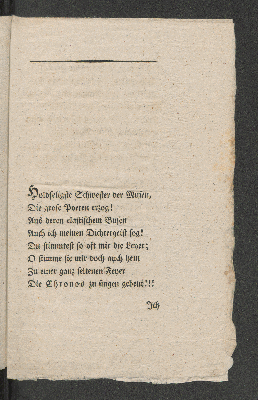 Holdseligste Schwester der Musen,
Die große Poeten erzog!
Aus deren elastischem Busen
Auch ich meinen Dichtergeist sog!
Du stimmtest so oft mir die Leyer;
O stimme sie mir doch auch heut
Zu einer ganz seltenen Feyer
Die Chronos zu singen gebeut!!!
Ich